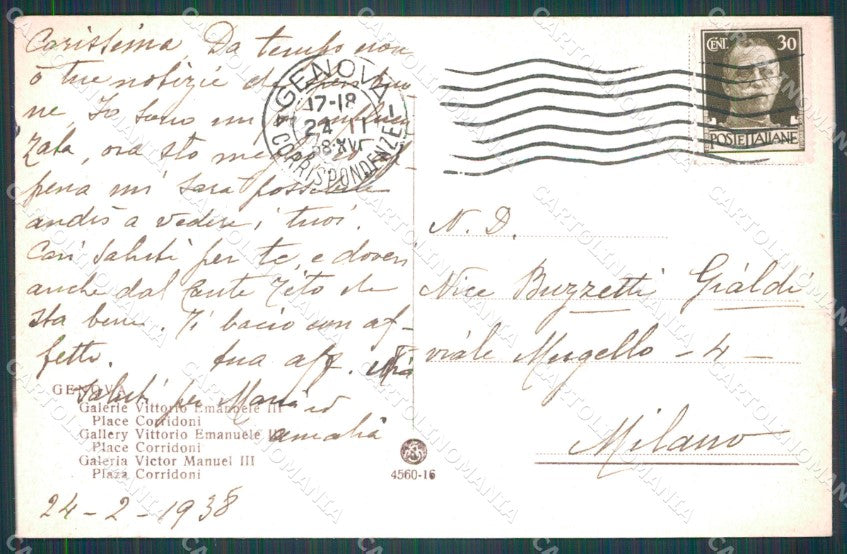 Carissima, Da tempo non
ò tue notizie
ne, Io sono
zata, ora sto
pena mi sarà possibile
andrò a vedere i tuoi.
Cari saluti per te, e doveri
anche dal Conte Tito che
sta bene. Ti bacio con af-
fetto. tua aff. Zia
saluti per Maria ed
amalia
24-2-1938
GENOVA
Galerie Vittorio Emanuele III
Place Corridoni
Gallery Vittorio Emanuele III
Place Corridoni
Galeria Victor Manuel III
Plaza Corridoni
4560-16
GENOVA
17-18
24 II
38·XVI
CORRISPONDENZE
CENT. 30
POSTE ITALIANE
N. D.
Nice Buzzetti Gialdi
viale Mugello - 4 -
Milano
CARTOLINOMANIA